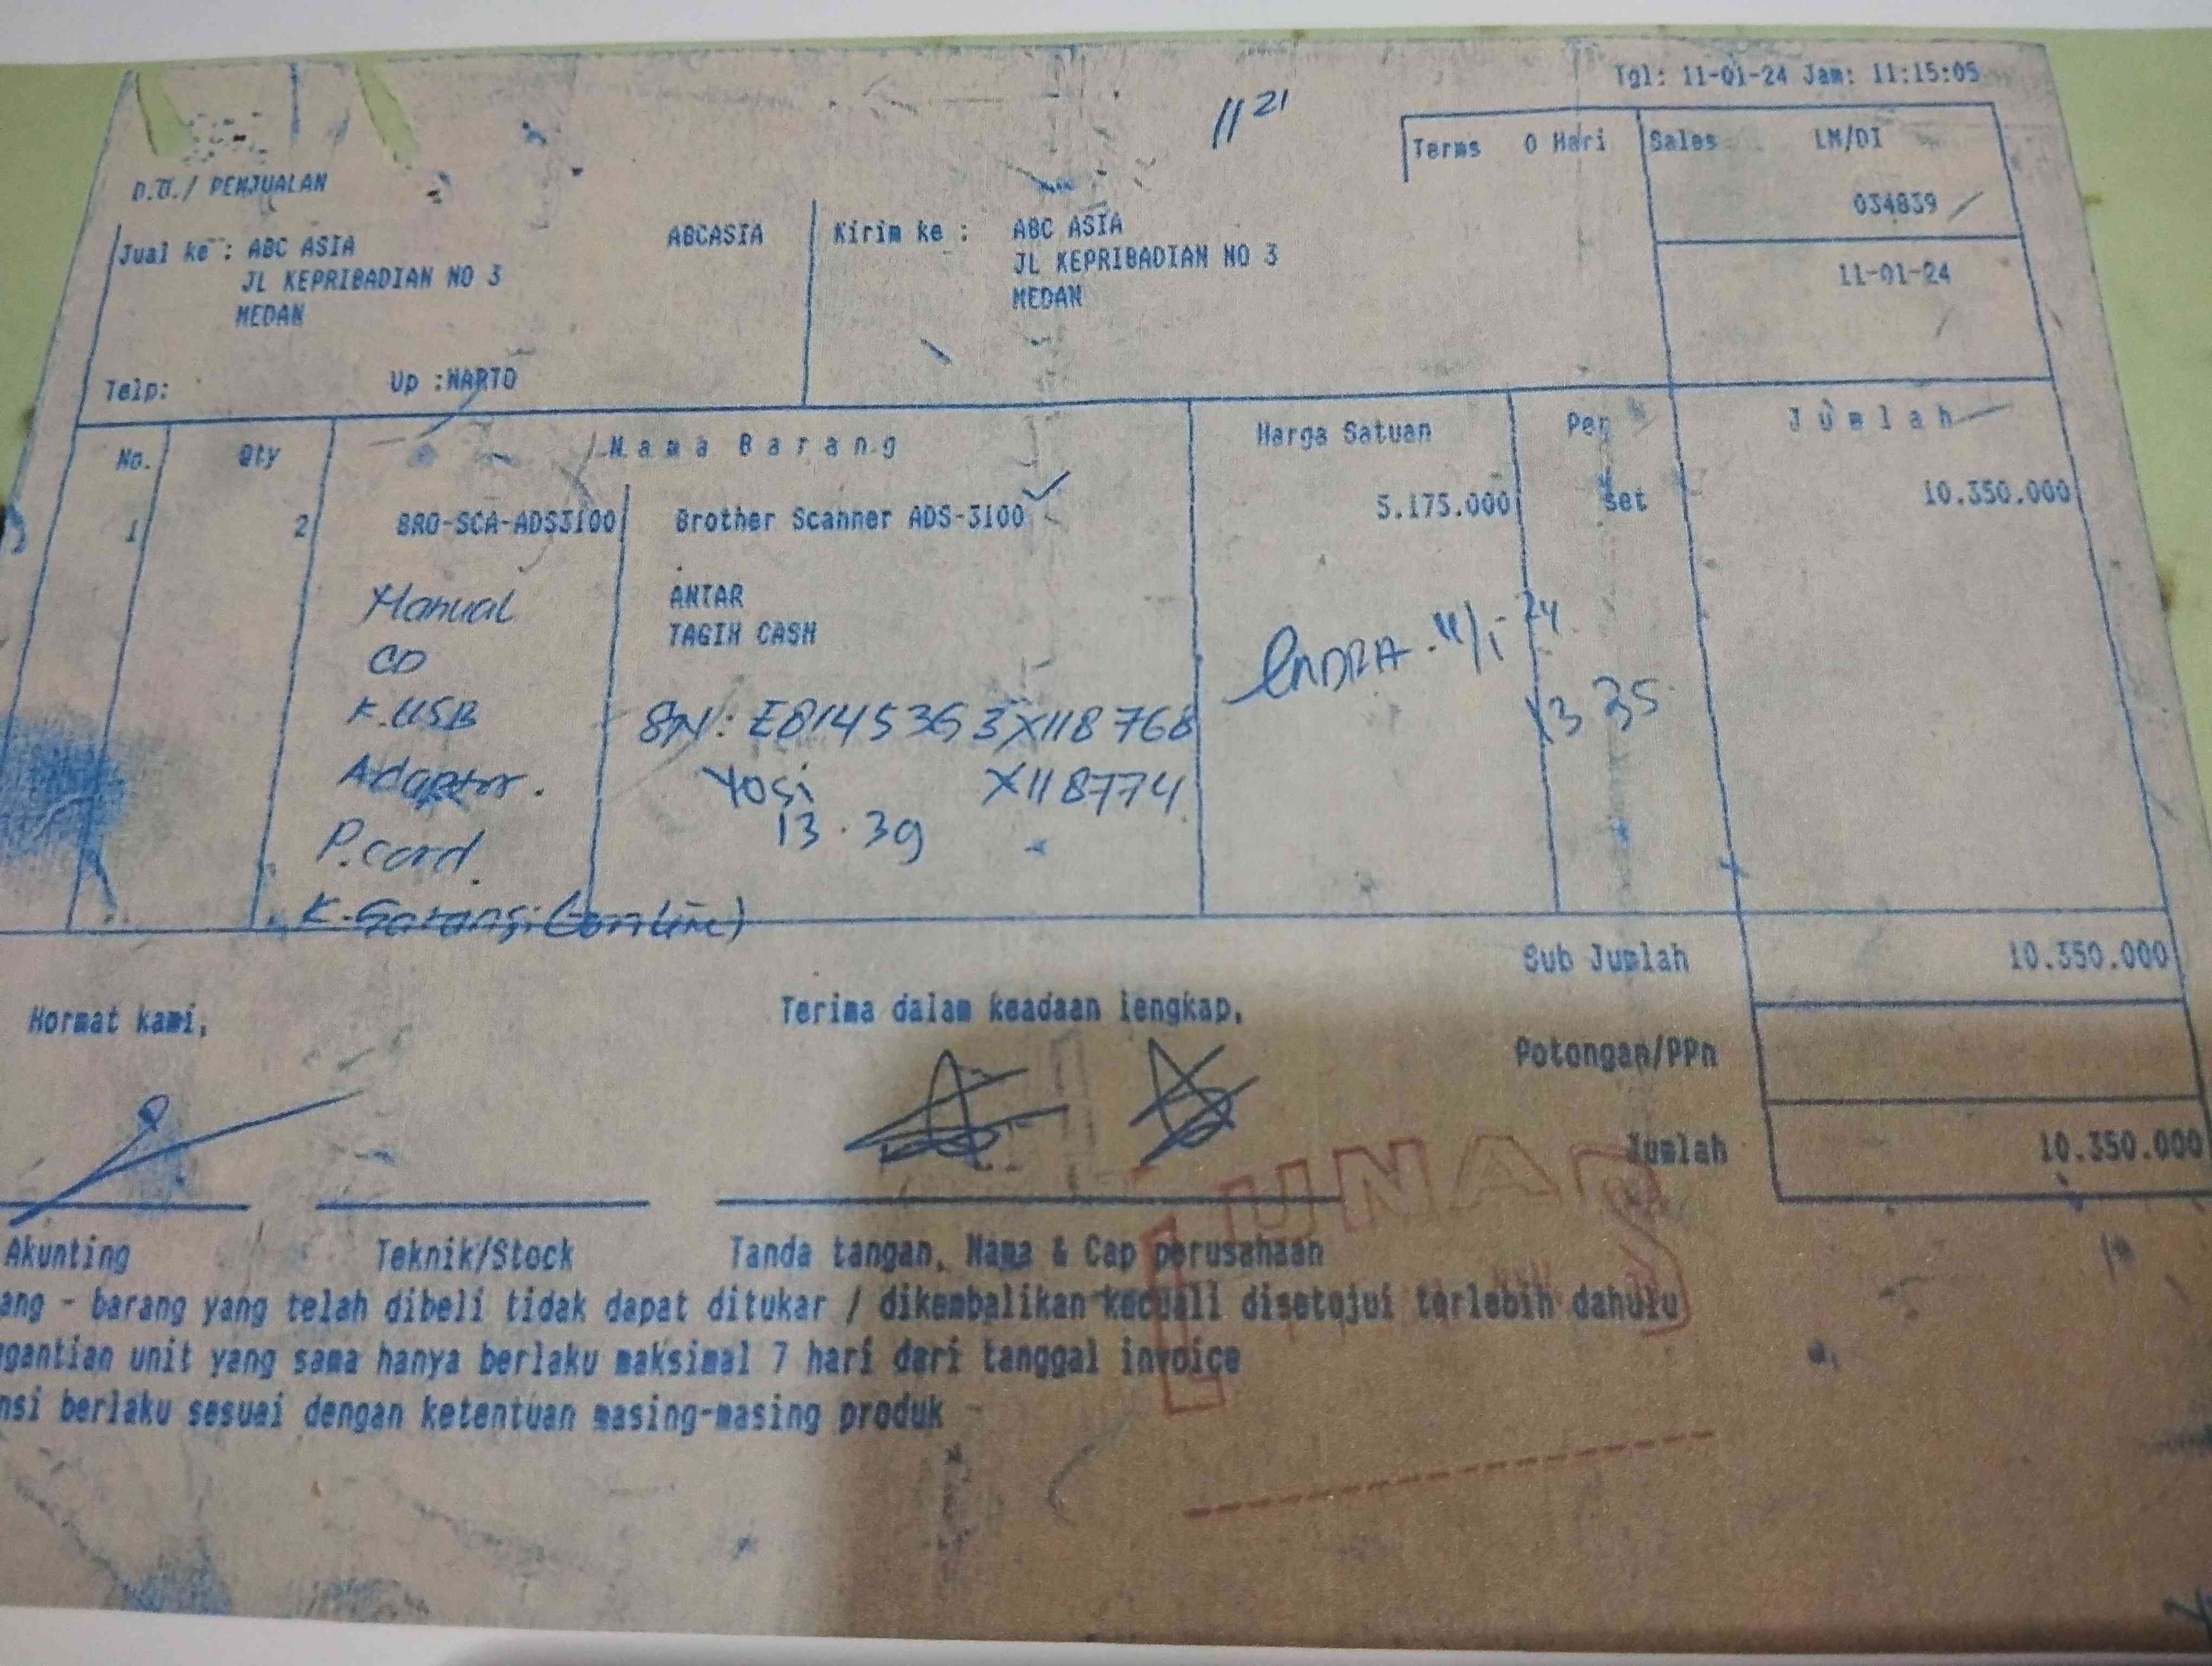 Tgl: 11-01-24 Jam: 11:15:05
11 21
Terms 0 Hari Sales LM/DI
034839
11-01-24
D.O./ PENJUALAN
Jual ke : ABC ASIA ABCASIA
JL KEPRIBADIAN NO 3
MEDAN
Kirim ke : ABC ASIA
JL KEPRIBADIAN NO 3
MEDAN
Telp: Up :WARTO
No. Qty Nama Barang Harga Satuan Per Jumlah
1 2 BRO-SCA-ADS3100 Brother Scanner ADS-3100 5.175.000 set 10.350.000
Manual
CD
K.USB
Adaptor.
P.card.
K-Garansi (online)
ANTAR
TAGIH CASH
SN: E81453G3X118768
X118774
Yosi
13.39
INDRA. 11/1-24
13 35
Sub Jumlah 10.350.000
Potongan/PPn
Jumlah 10.350.000
Hormat kami,
Terima dalam keadaan lengkap,
LUNAS
Akunting Teknik/Stock Tanda tangan, Nama & Cap perusahaan
ang - barang yang telah dibeli tidak dapat ditukar / dikembalikan kecuali disetujui terlebih dahulu
gantian unit yang sama hanya berlaku maksimal 7 hari dari tanggal invoice
nsi berlaku sesuai dengan ketentuan masing-masing produk